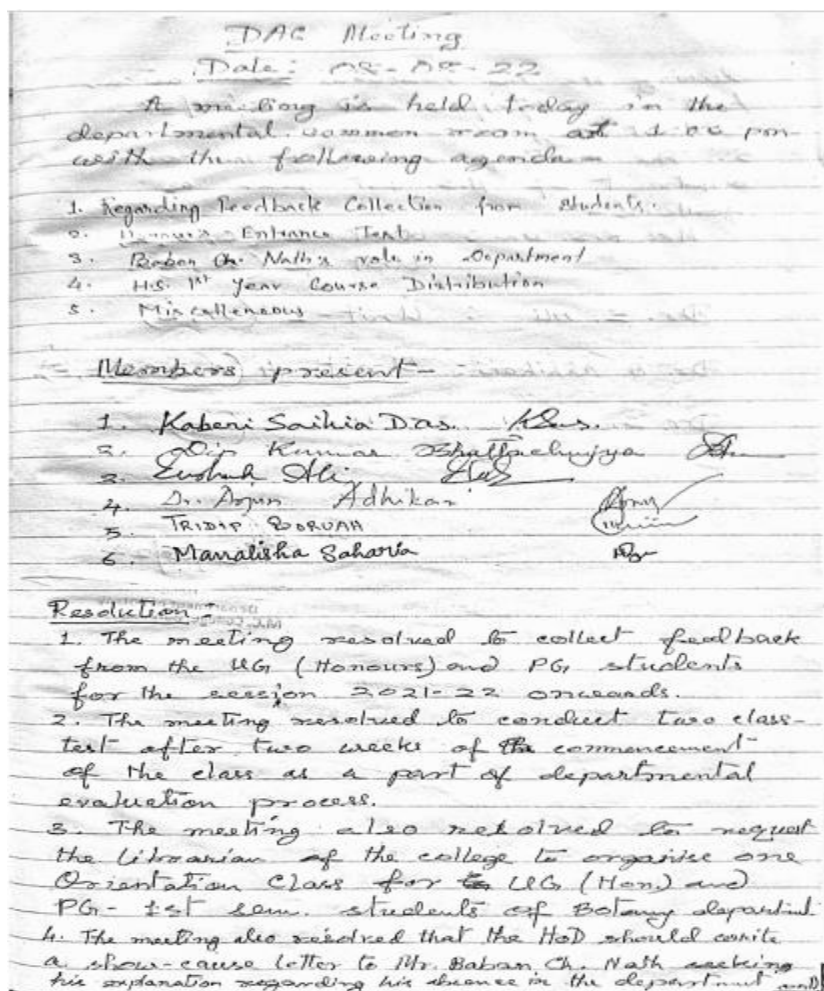 DAC Meeting
Date: 22
A meeting is held today in the
departmental common room at 1.00 pm
with the following agenda -
1. Regarding Feedback Collection from Students.
2. Entrance Test
3. Baban Ch. Nath's role in Department
4. H.S. 1st Year Course Distribution
5. Miscelleneous
Members present -
1. Kaberi Saikia Das.
2. Dip Kumar Bhattacharjya
3. Ali
4. Dr. Arjun Adhikari
5. TRIDIP BORUAH
6. Manalisha Saharia
Resolution :
1. The meeting resolved to collect feedback
from the UG (Honours) and PG students
for the session 2021-22 onwards.
2. The meeting resolved to conduct two class-
test after two weeks of the commencement
of the class as a part of departmental
evaluation process.
3. The meeting also resolved to request
the Librarian of the college to organise one
Orientation Class for UG (Hon.) and
PG - 1st sem. students of Botany
4. The meeting also resolved that the HoD should write
a show-cause letter to Mr. Baban Ch. Nath seeking
his explanation regarding his absence in the department